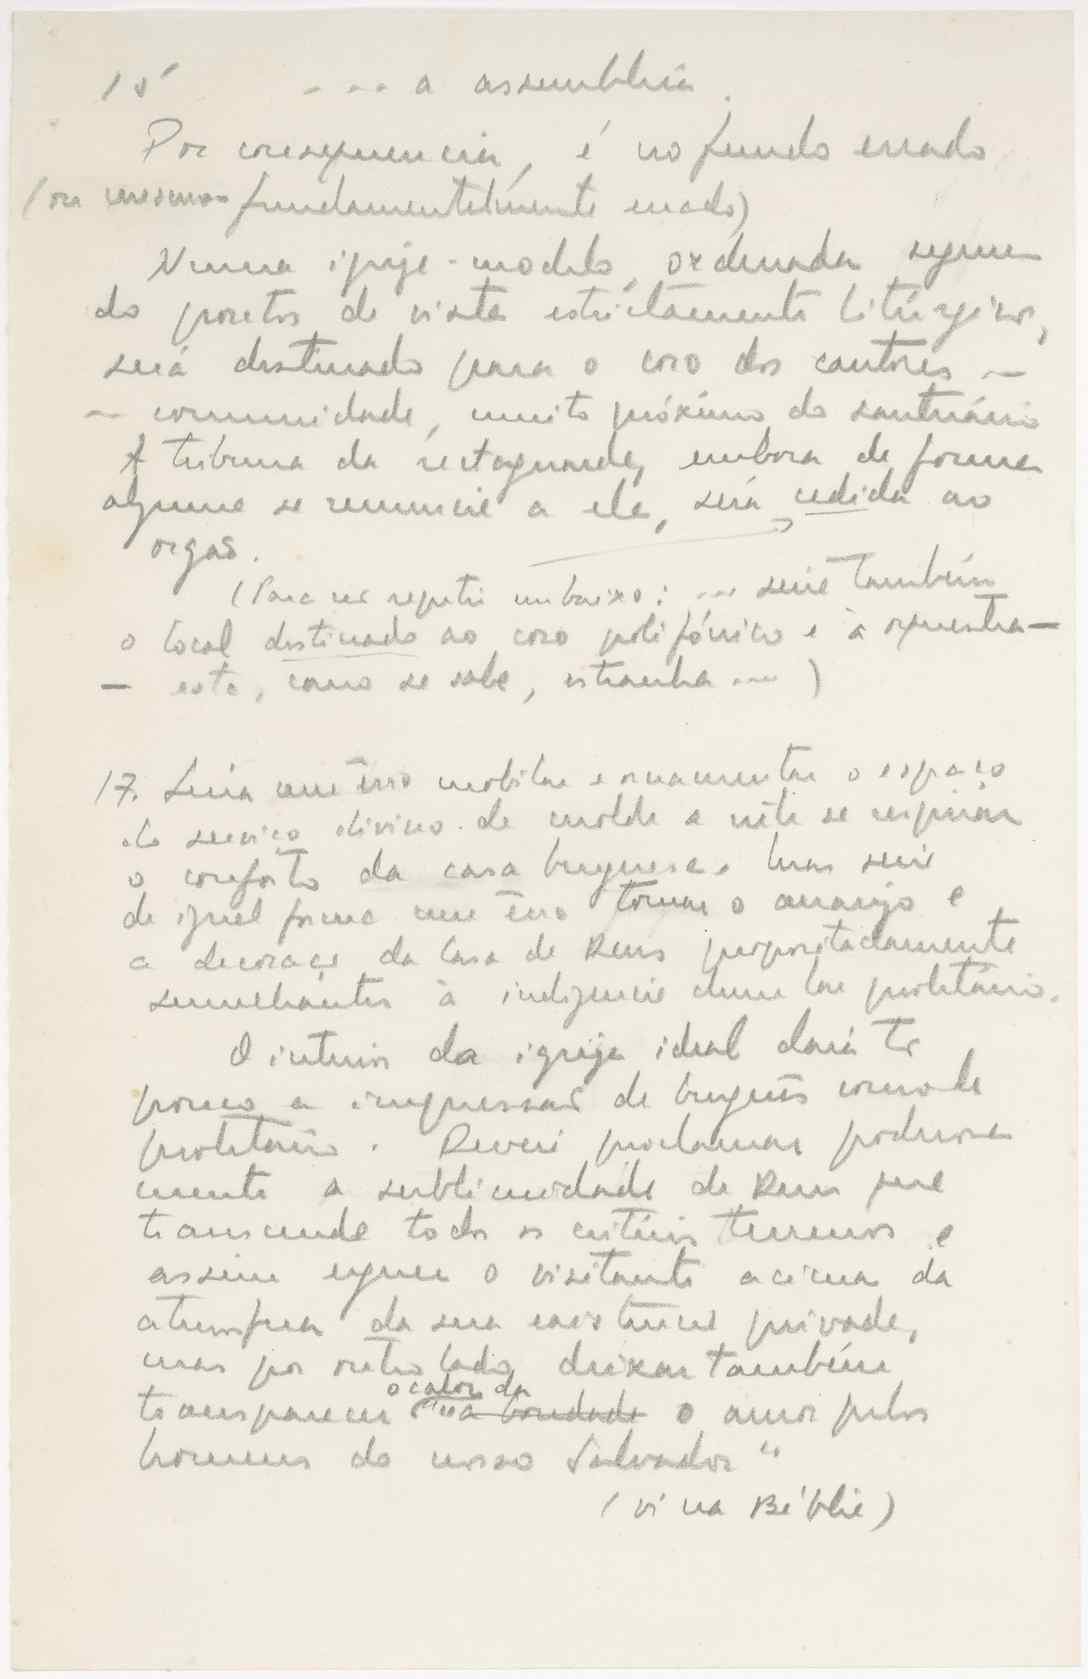 15 --- a assembleia.
Por consequencia, é no fundo errado
(ou mesmo fundamentalmente errado)
Numa igreja-modelo, ordenada segun
do pontos de vista estrictamente litúrgicos,
será destinado para o coro dos cantores —
— comunidade, muito próximo do santuário
A tribuna da rectaguarda, embora de forma
alguma se renuncie a ela, será cedida ao
orgão.
(Para repetir embaixo: ... seria também
o local destinado ao coro polifónico e à orquestra —
— esta, como se sabe, estranha ---- )
17. Seria um êrro mobilar e ornamentar o espaço
do serviço divino de molde a nele se respirar
o conforto da casa burguesa. Mas seria
de igual forma um êrro tornar o arranjo e
a decoração da Casa de Deus propositadamente
semelhantes à indigencia dum lar proletário.
O interior da igreja ideal dará tão
pouco a impressão de burguês como de
proletário. Deverá proclamar poderosa
mente a sublimidade de Deus que
transcende todos os critérios terrenos e
assim erguer o visitante acima da
atmosfera da sua existência privada,
mas por outro lado deixar também
o calor da
transparecer a bondade o amor pelos
homens do nosso Salvador"
(vi na Bíblia)